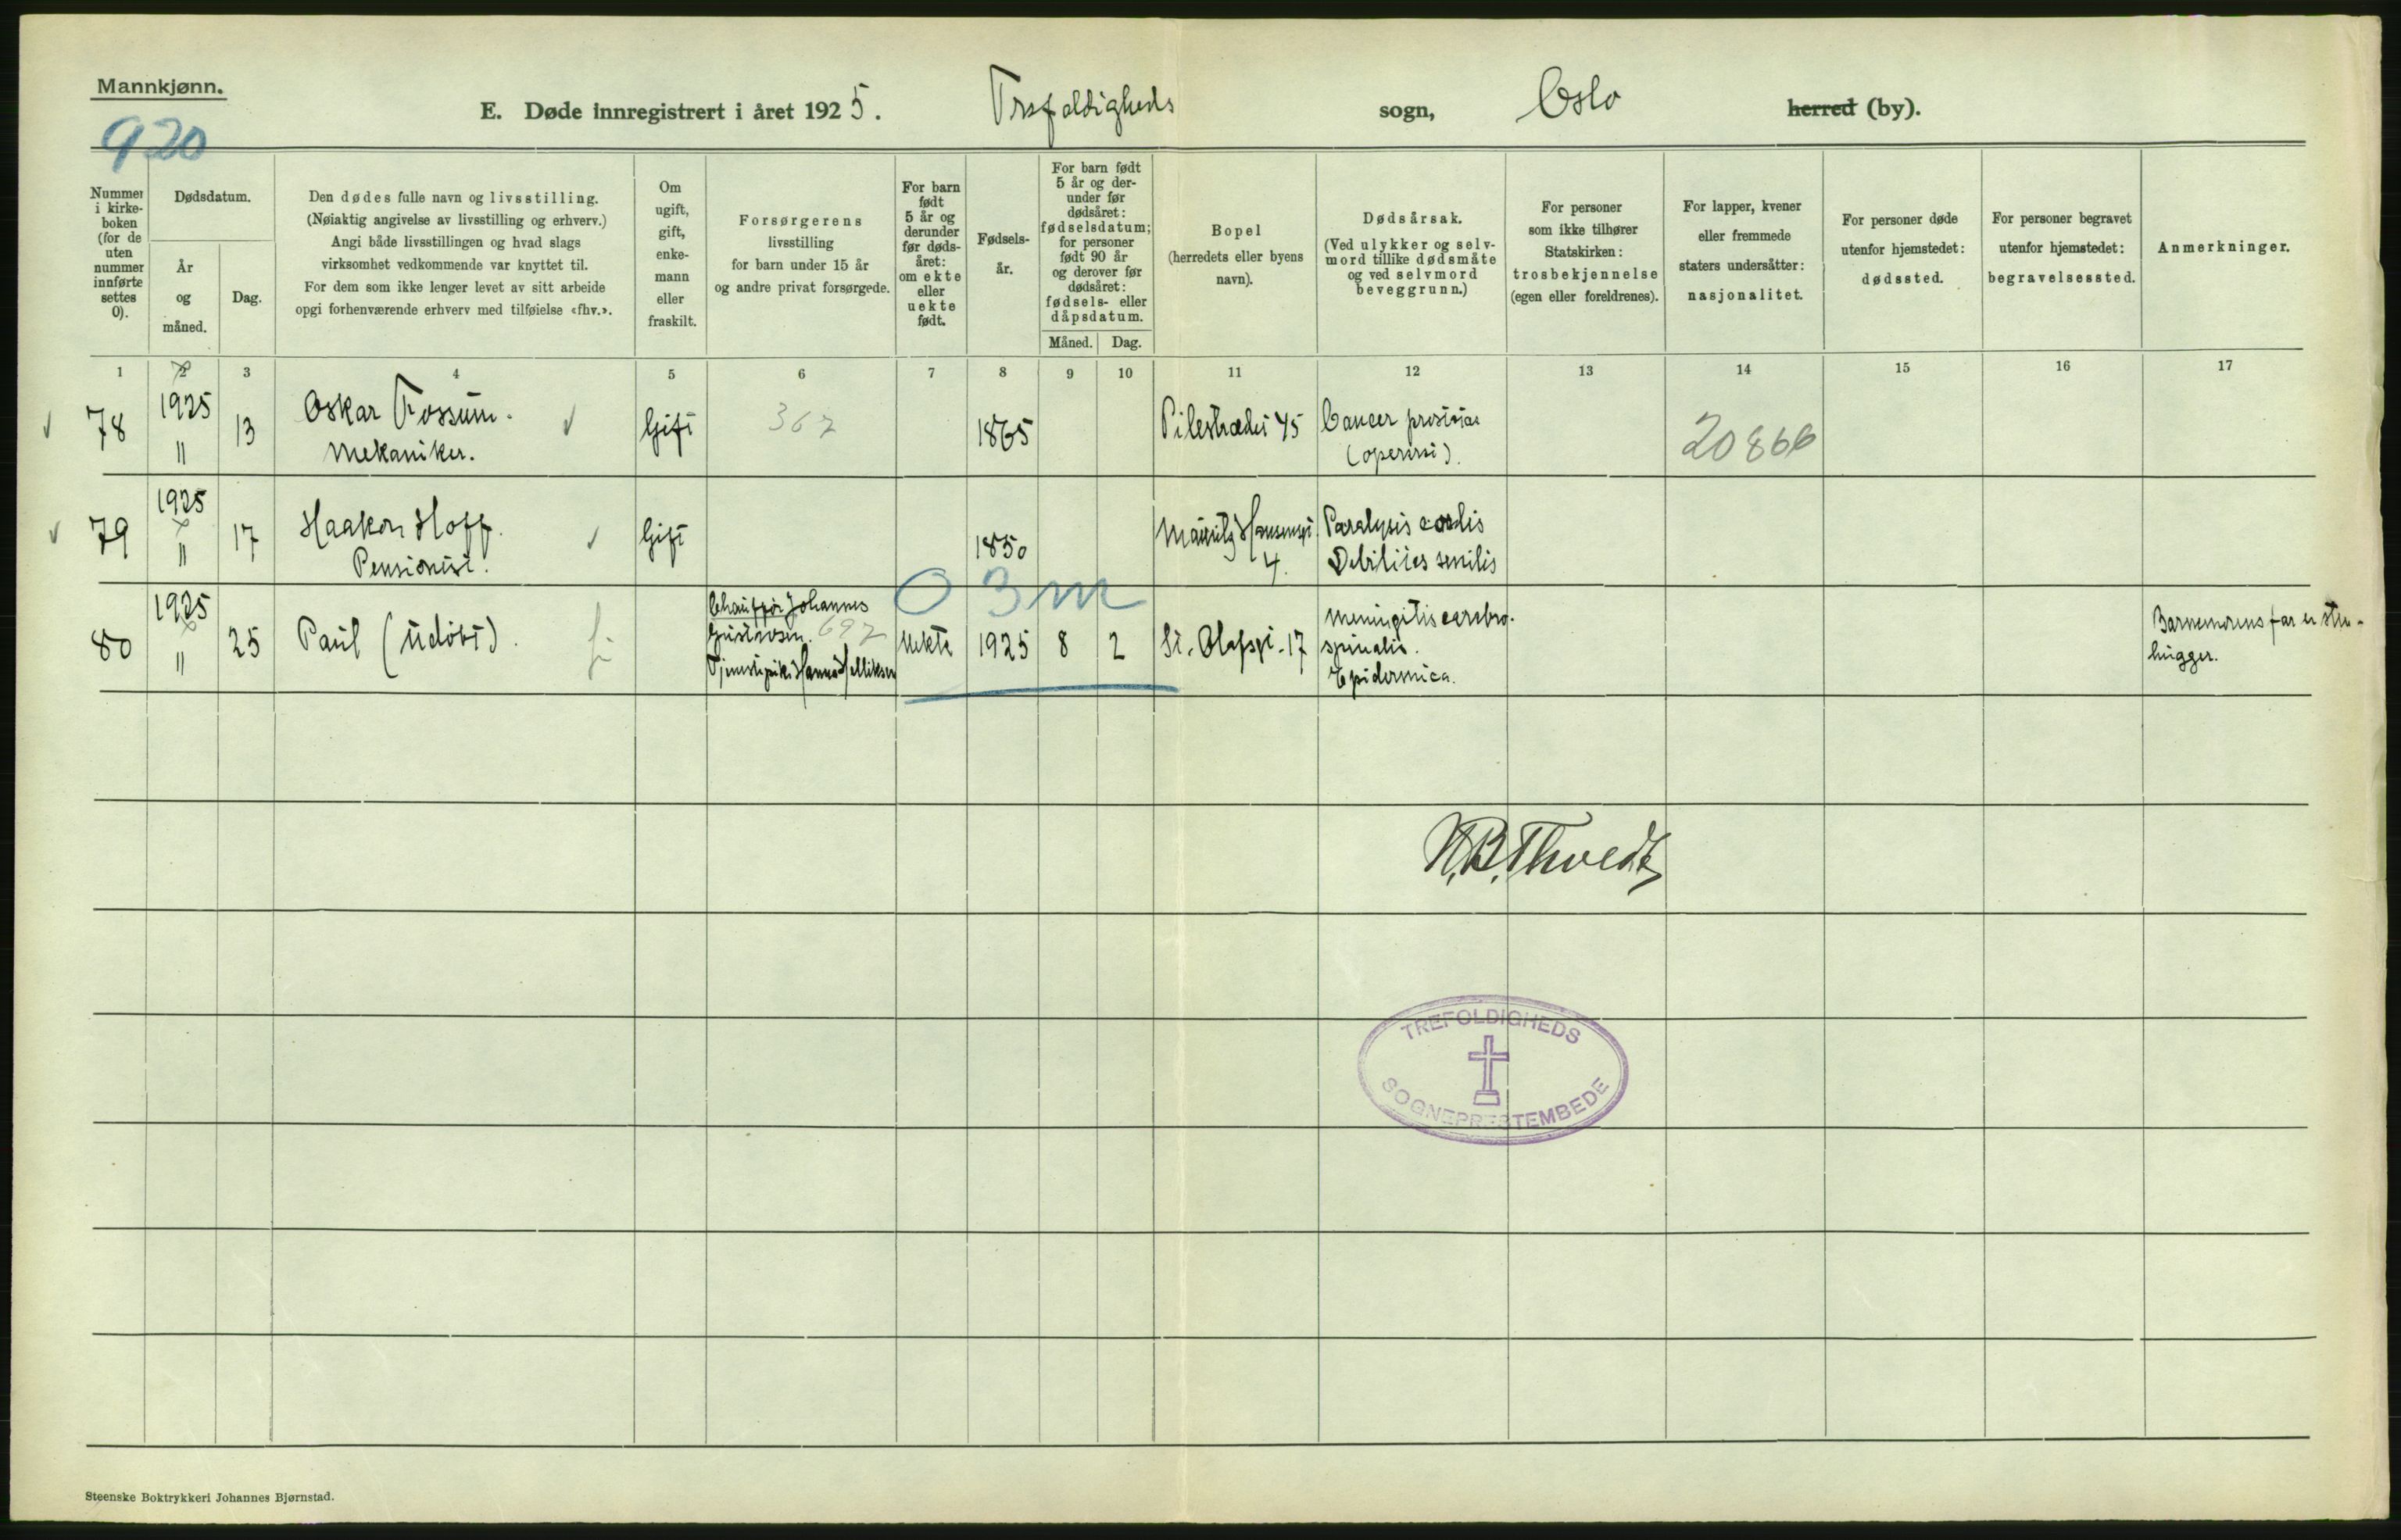 Mannkjønn.
920
E. Døde innregistrert i året 1925. Trefoldigheds sogn, Oslo herred (by).
Nummer
i kirke-
boken
(for de
uten
nummer
innførte
settes
0).
Dødsdatum.
År
og
måned.
Dag.
Den dødes fulle navn og livsstilling.
(Nøiaktig angivelse av livsstilling og erhverv.)
Angi både livsstillingen og hvad slags
virksomhet vedkommende var knyttet til.
For dem som ikke lenger levet av sitt arbeide
opgi forhenværende erhverv med tilføielse «fhv.».
Om
ugift,
gift,
enke-
mann
eller
fraskilt.
Forsørgerens
livsstilling
for barn under 15 år
og andre privat forsørgede.
For barn
født
5 år og
derunder
før døds-
året:
om ekte
eller
uekte
født.
Fødsels-
år.
For barn født
5 år og der-
under før
dødsåret:
fødselsdatum;
for personer
født 90 år
og derover før
dødsåret:
fødsels- eller
dåpsdatum.
Måned.
Dag.
Bopel
(herredets eller byens
navn).
Dødsårsak.
(Ved ulykker og selv-
mord tillike dødsmåte
og ved selvmord
beveggrunn.)
For personer
som ikke tilhører
Statskirken:
trosbekjennelse
(egen eller foreldrenes).
For lapper, kvener
eller fremmede
staters undersåtter:
nasjonalitet.
For personer døde
utenfor hjemstedet:
dødssted.
For personer begravet
utenfor hjemstedet:
begravelsessted.
Anmerkninger.
1 2 3 4 5 6 7 8 9 10 11 12 13 14 15 16 17
78
1925
11
13
Oskar Fossum.
Mekaniker.
Gift
367
1865
Pilestrædet 45
Cancer
(operert).
20866
79
1925
11
17
Haakon Hoff.
Pensionist.
Gift
1850
Mauritz Hansensgt.
4.
Paralysis cordis
Debilitas senilis
80
1925
11
25
Paul (udøbt).
Chauffør Johannes
697
Uekte
0 3m
1925
8
2
St. Olafsgt. 17
Meningitis cerebro-
spinalis.
Epidermica.
Barnemorens far er sten-
hugger.
N.B. Thvedt
TREFOLDIGHEDS
SOGNEPRESTEMBEDE
Steenske Boktrykkeri Johannes Bjørnstad.